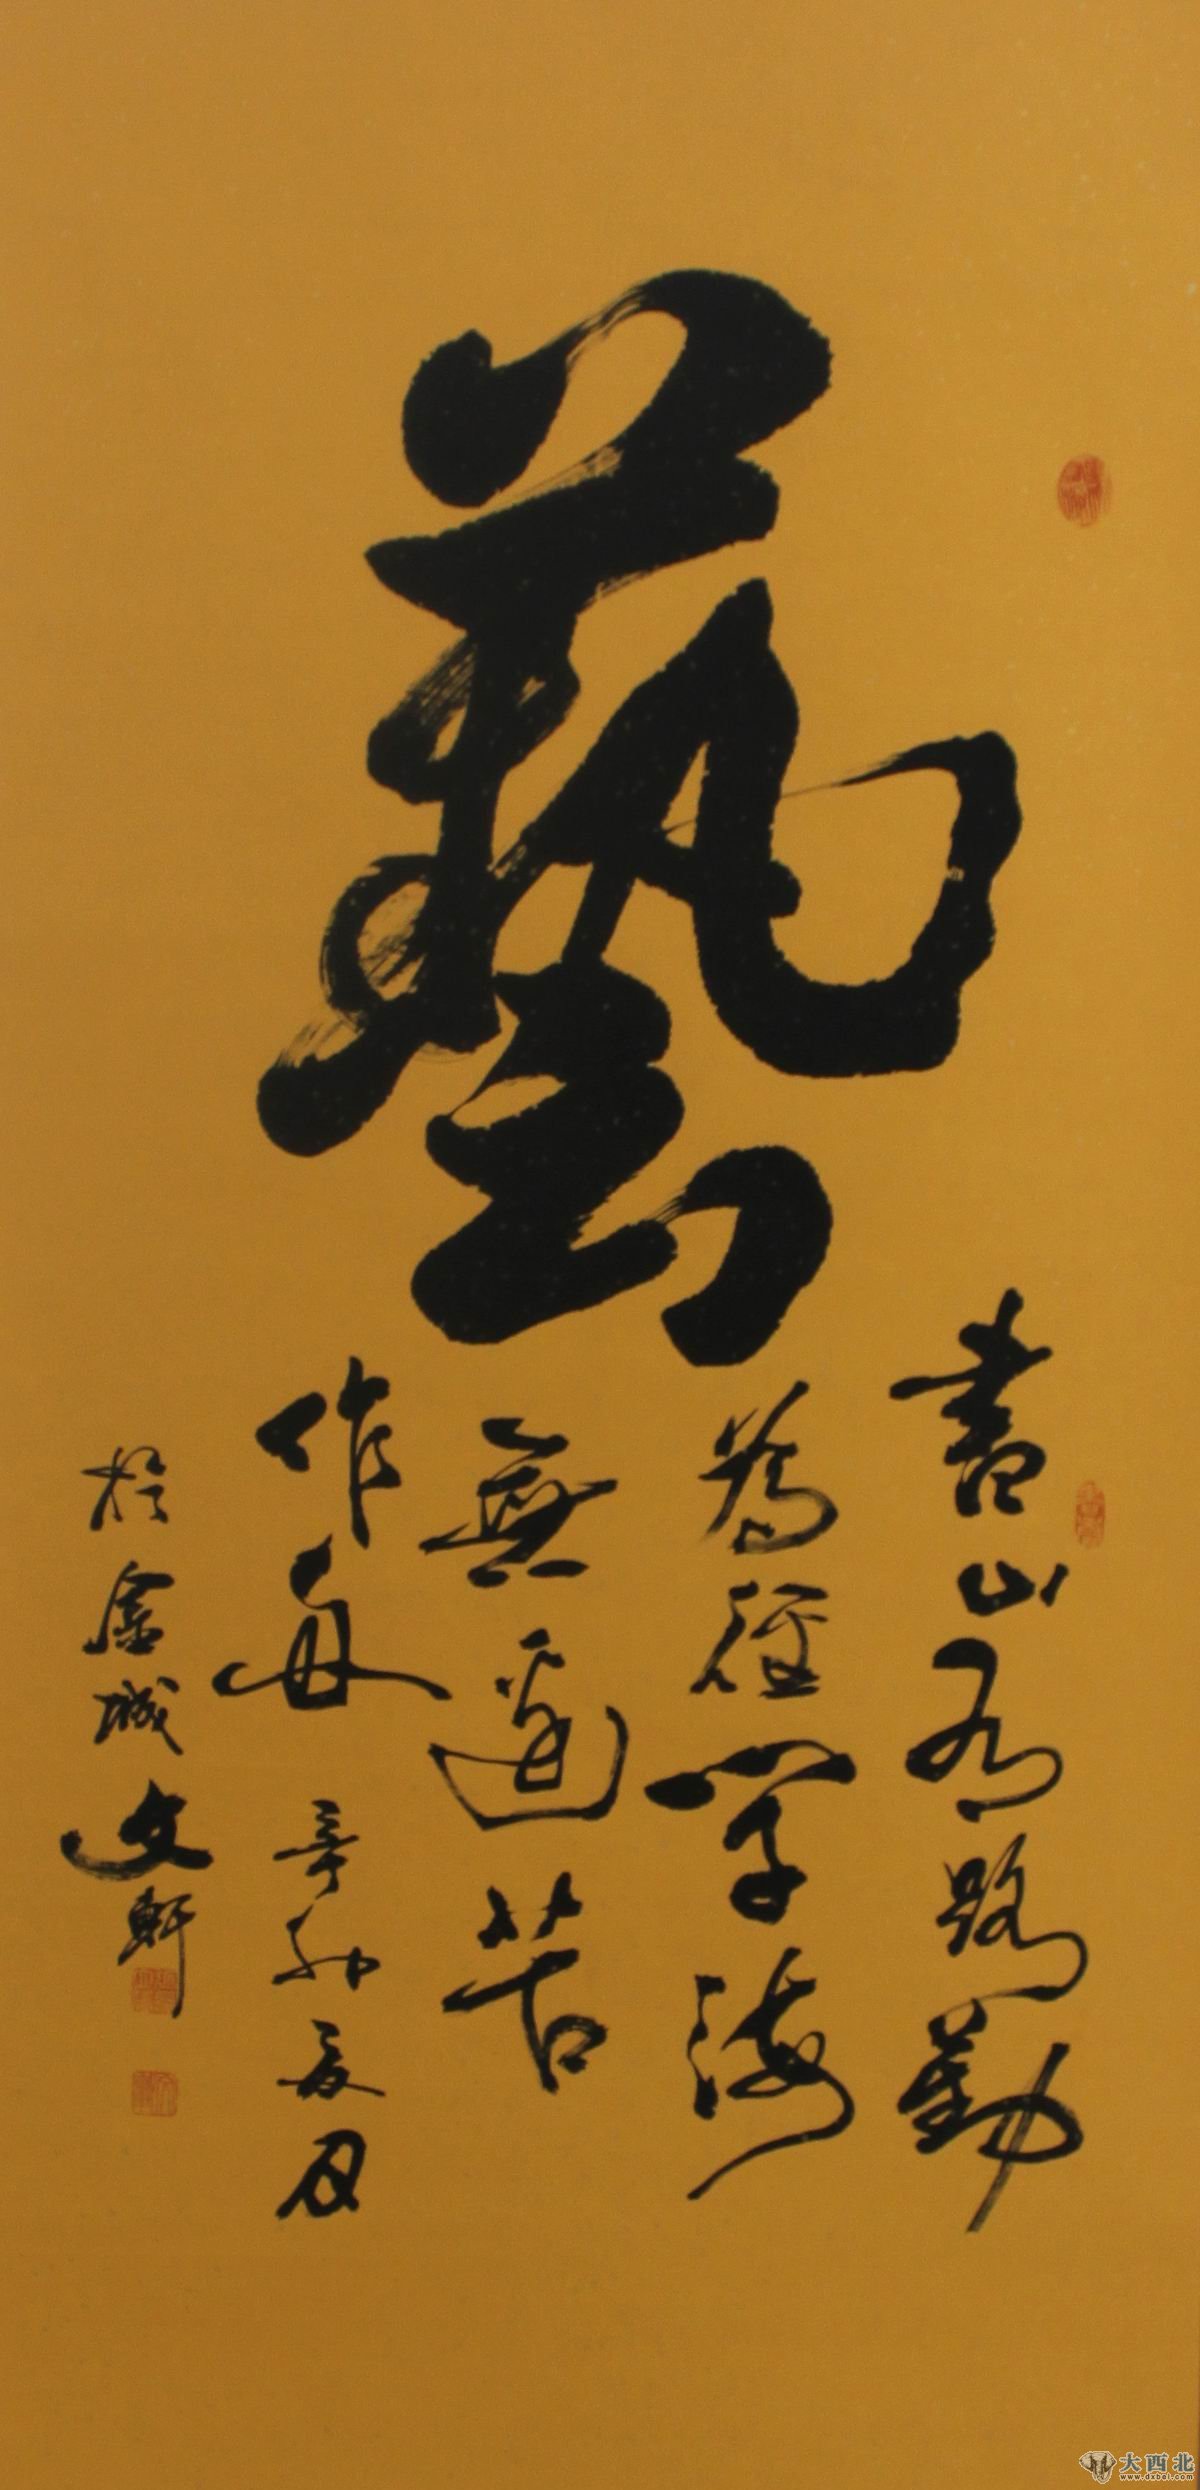 藝
書山有路勤
為徑學海
無邊苦
作舟
辛卯夏月
於金城文軒
大西北
www.dxbei.com